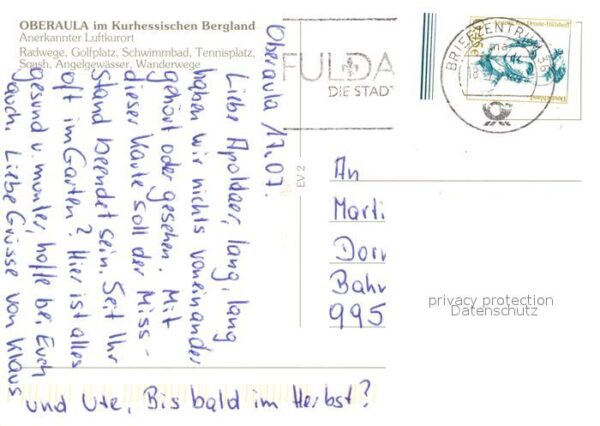 OBERAULA im Kurhessischen Bergland
Anerkannter Luftkurort
Radwege, Golfplatz, Schwimmbad, Tennisplatz,
Squash, Angelgewässer, Wanderwege
Oberaula 17.07.
Liebe Apoldaer, lang, lang
haben wir nichts voneinander
gehört oder gesehen. Mit
dieser Karte soll der Miss-
stand beendet sein. Seid Ihr
oft im Garten? Hier ist alles
gesund u. munter, hoffe bei Euch
auch. Liebe Grüsse von Klaus
und Ute, Bis bald im Herbst?
FULDA
DIE STADT
BRIEFZENTRUM 36
Droste-Hülshoff
Deutschland
EV 2
An
Marti
Dorn
Bahn
995
privacy protection
Datenschutz